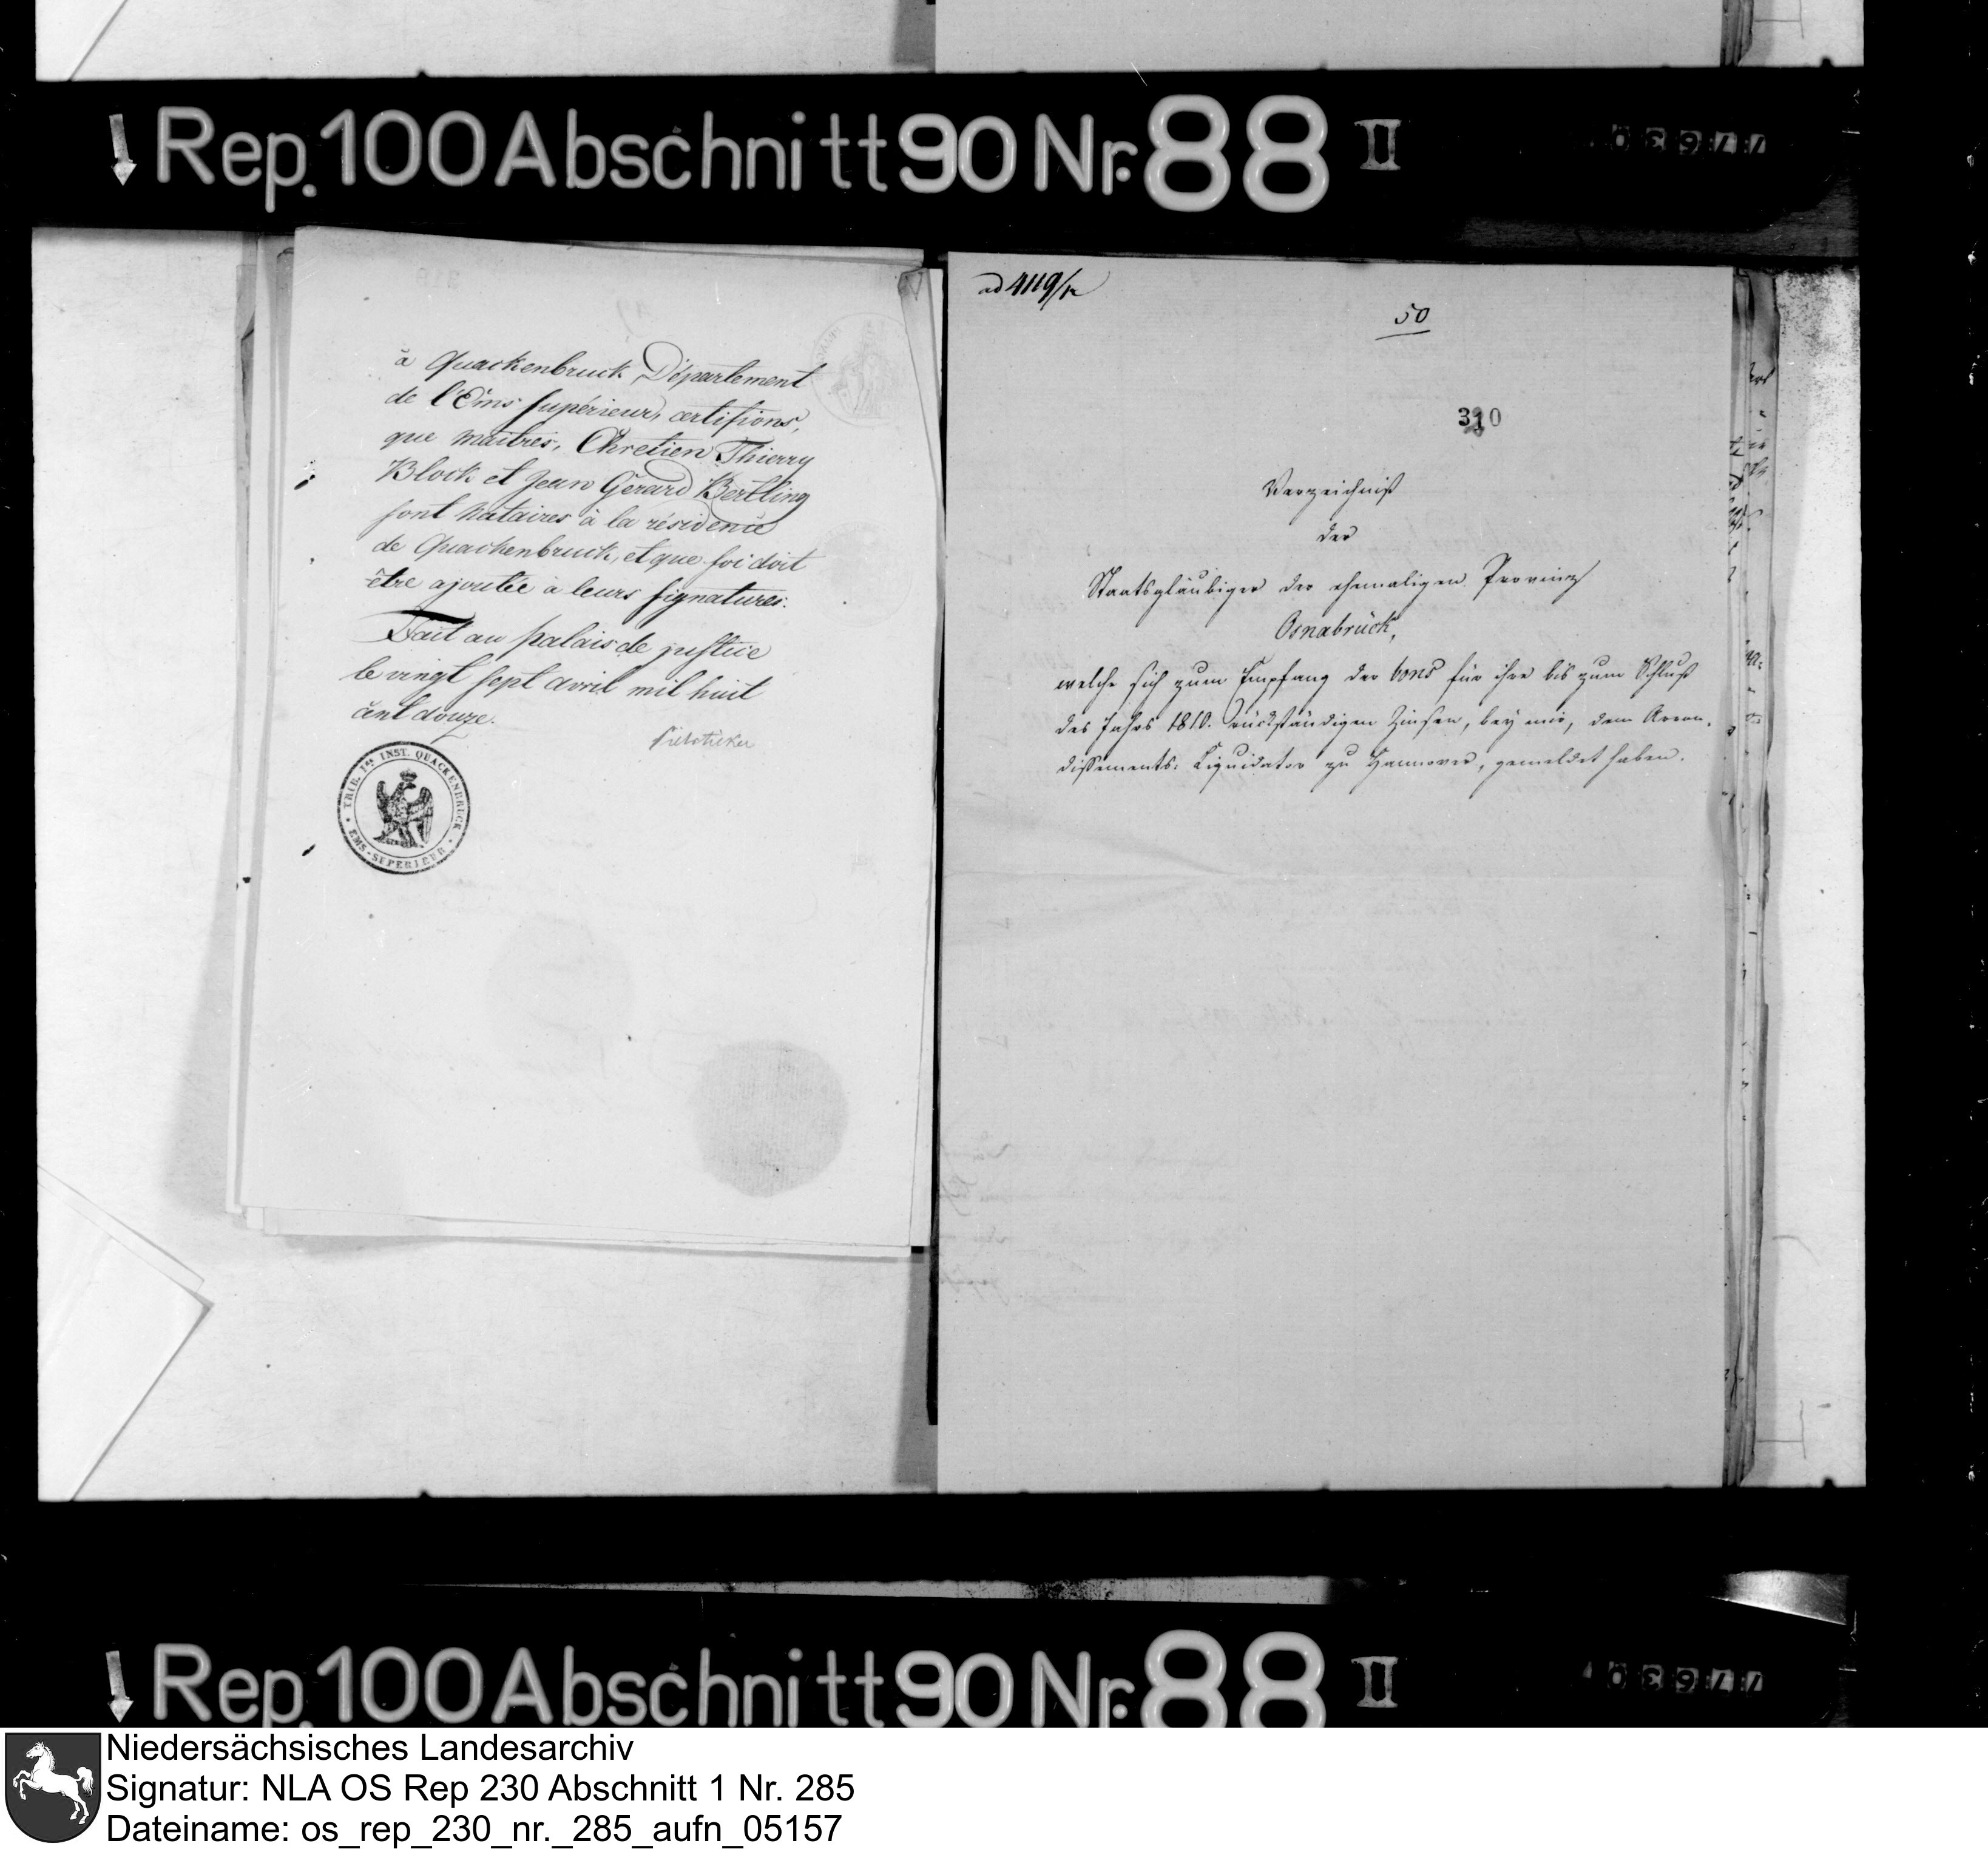 Rep. 100 Abschnitt 90 Nr. 88 II
à Quackenbruck Département
de l'Ems supérieur, certifions,
que maitres, Chretien Thierry
Block et Jean Gerard Bertling
sont Notaires à la résidence
de Quackenbruck, et que foi doit
être ajoutée à leurs signatures.
Fait au palais de justice
le vingt sept avril mil huit
cent douze.
TRIB. 1re INST. QUACKENBRUCK
EMS-SUPERIEUR
ad 4119/12
50
310
Verzeichniß
der
Staatsgläubiger der ehemaligen Provinz
Osnabrück,
welche sich zum Empfang der bons für ihre bis zum Schluß
des Jahrs 1810. rückständigen Zinsen, bey mir, dem Arron-
dissements-Liquidator zu Hannover, gemeldet haben.
Rep. 100 Abschnitt 90 Nr. 88 II
Niedersächsisches Landesarchiv
Signatur: NLA OS Rep 230 Abschnitt 1 Nr. 285
Dateiname: os_rep_230_nr._285_aufn_05157